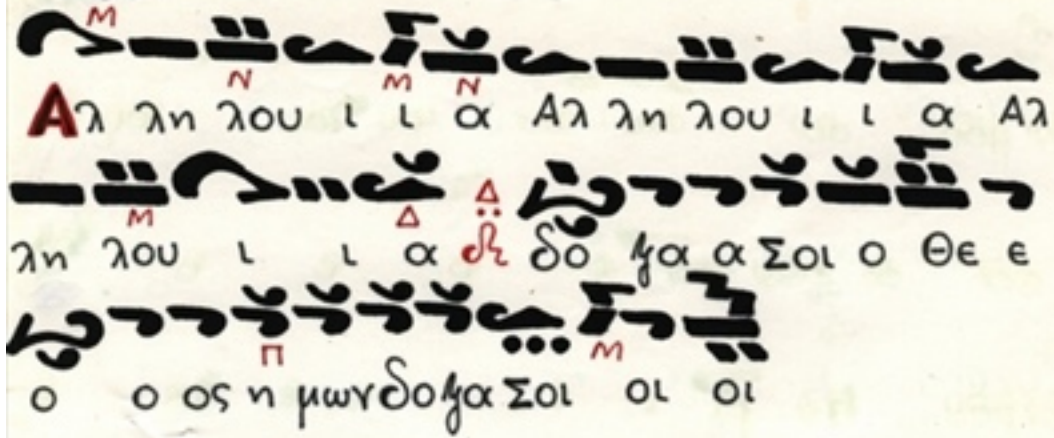 Μ Ν Μ Ν
Αλ λη λου ι ι α Αλ λη λου ι ι α Αλ
Μ Δ Δ
λη λου ι ι α δο ξα α Σοι ο Θε ε
Π Μ
ο ο ος η μων δο ξα Σοι οι οι